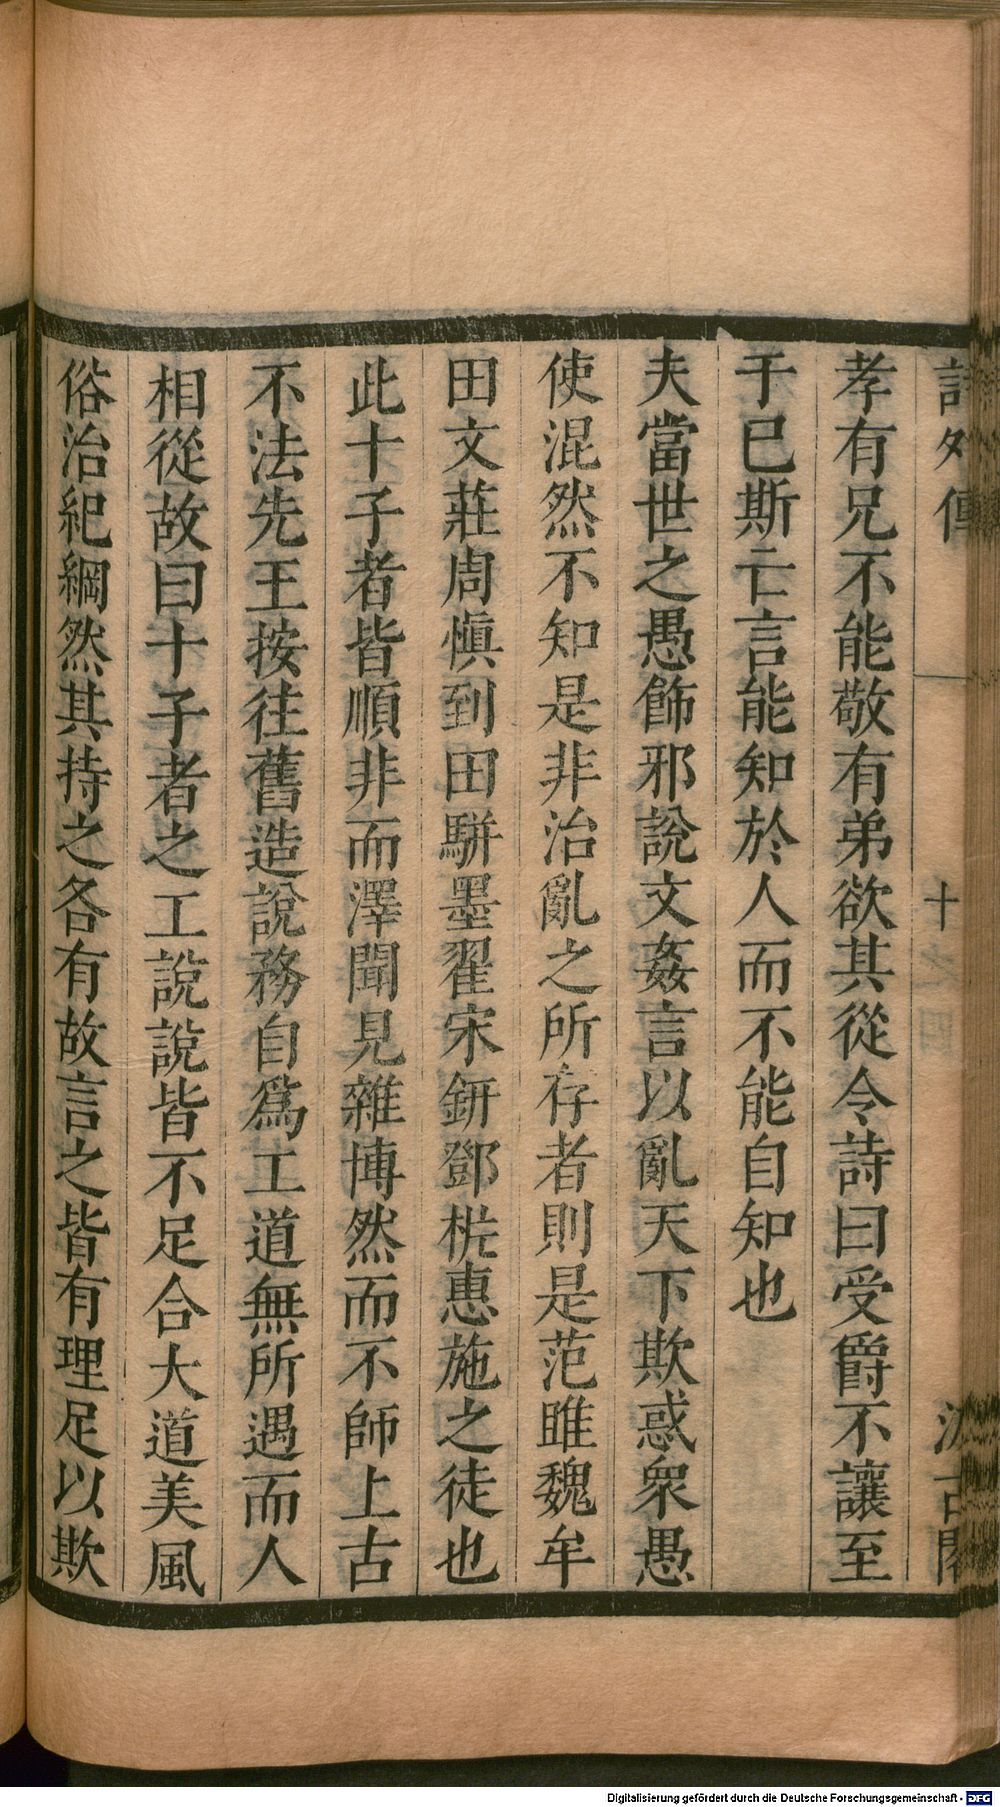 詩外傳 十 汲古閣
孝有兄不能敬有弟欲其從令詩曰受爵不讓至
于已斯亡言能知於人而不能自知也
夫當世之愚飾邪說文姦言以亂天下欺惑衆愚
使混然不知是非治亂之所存者則是范雎魏牟
田文莊周慎到田駢墨翟宋鈃鄧析惠施之徒也
此十子者皆順非而澤聞見雜博然而不師上古
不法先王按往舊造說務自爲工道無所遇而人
相從故曰十子者之工說說皆不足合大道美風
俗治紀綱然其持之各有故言之皆有理足以欺
Digitalisierung gefördert durch die Deutsche Forschungsgemeinschaft - DFG